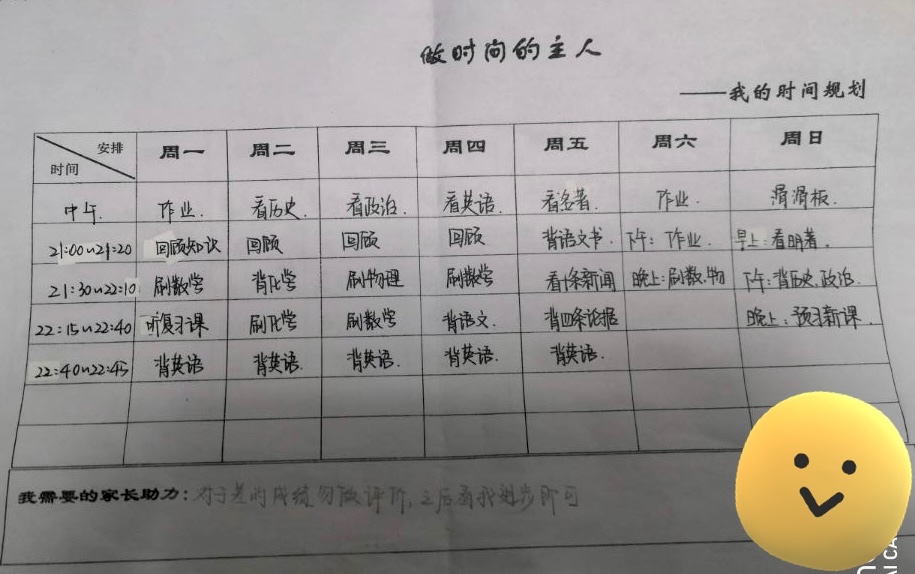 做时间的主人
——我的时间规划
安排 时间 周一 周二 周三 周四 周五 周六 周日
中午. 作业. 看历史. 看政治. 看英语. 看名著. 作业. 滑滑板.
21:00~21:20 回顾知识 回顾 回顾 回顾 背语文书. 下午: 作业. 早上: 看明著.
21:30~22:10 刷数学 背化学 刷物理 刷数学 看1条新闻 晚上:刷数.物 下午:背历史.政治.
22:15~22:40 听复习课 刷化学 刷数学 背语文. 背四条论据 晚上: 预习新课.
22:40~22:45 背英语 背英语. 背英语. 背英语. 背英语.
我需要的家长助力: 对于差的成绩勿做评价, 之后看我进步即可